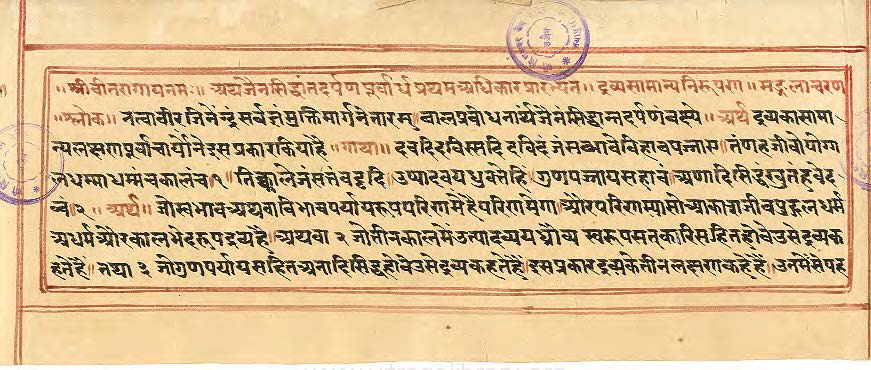 ॥श्रीवीतरागायनमः॥ अथजैनसिद्धांतदर्पण पूर्वार्ध प्रथमअधिकारप्रारभ्यते॥ द्रव्यसामान्यनिरूपण॥ मङ्गलाचरण
॥श्लोक॥ नत्वावीरजिनेंद्रं सर्वज्ञंमुक्तिमार्गनेतारम्॥ बालप्रबोधनार्थंजैनंसिद्धान्तदर्पणंवक्ष्ये॥ अर्थ द्रव्यकासामा
न्यलक्षणपूर्वाचार्योंनेइसप्रकारकियाहै॥गाथा॥ दवदिदविस्सदि दविदं जंसब्भावेविहावपज्जाए॥ तंणहजीवोपोग्ग
लधम्माधम्मंचकालंच॥१॥ तिक्कालेजंसत्तंवट्टदि उप्पादवयधुवत्तेहिं॥ गुणपज्जायसहावं अणादिसिद्धंखुतंहवेद
व्वं॥२॥ अर्थ॥ जोस्वभावअथवाविभावपर्यायरूपपरिणमेहैपरिणमेगा॥औरपरिणम्यासोआकाशजीवपुद्गलधर्म
अधर्मऔरकालभेदरूपद्रव्यहै॥ अथवा २ जोतीनकालमेंउत्पादव्ययध्रौव्य स्वरूपसत्करिसहितहोवैउसेद्रव्यक
हतेहैं॥ तथा ३ जोगुणपर्यायसहितअनादिसिद्धहोवेउसेद्रव्यकहतेहैं॥ इसप्रकारद्रव्यकेतीनलक्षणकहेहैं॥ उनमेंसेपह